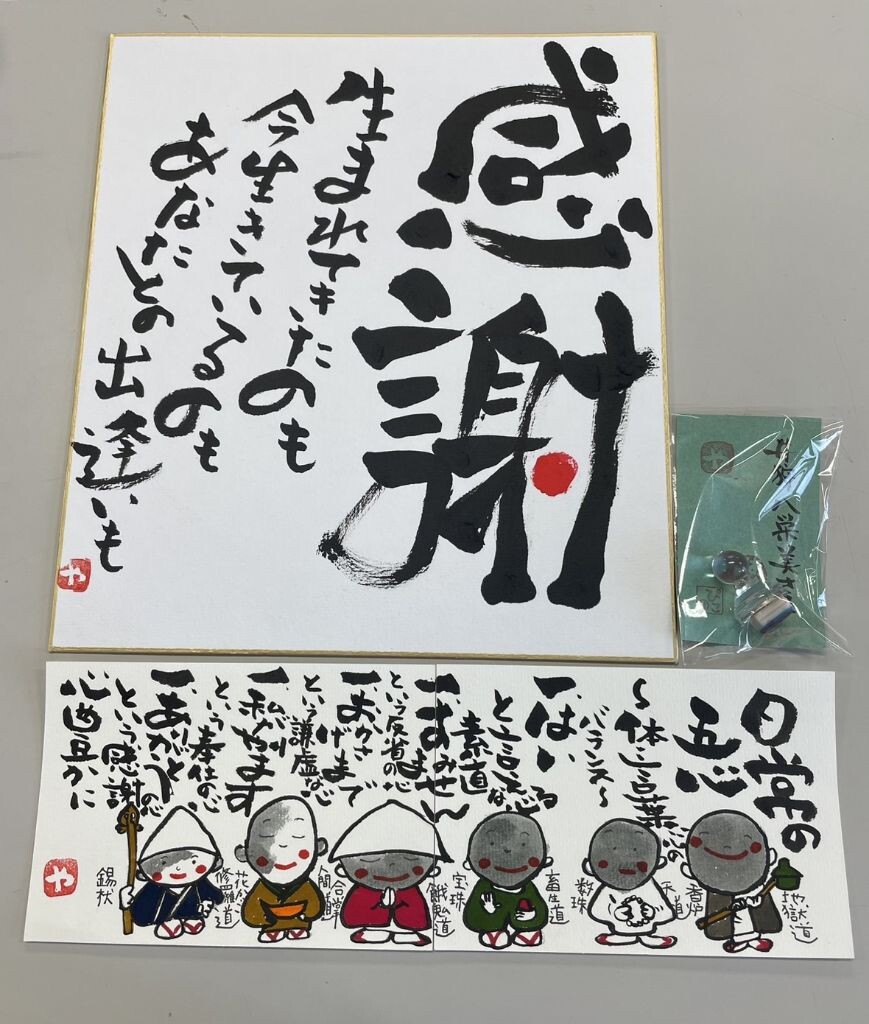 感謝
生まれてきたのも
今生きているのも
あなたとの出逢いも
や
や
日常の
五心
〜体と言葉と心の
バランス〜
一、はい
と言える
素直な心
一、すみません
という反省の心
一、おかげさまで
という謙虚な心
一、私がやります
という奉仕の心
一、ありがとう
という感謝の心
心豊かに
地獄道
香炉
天道
数珠
畜生道
宝珠
餓鬼道
合掌
人間道
花盆
修羅道
錫杖
や